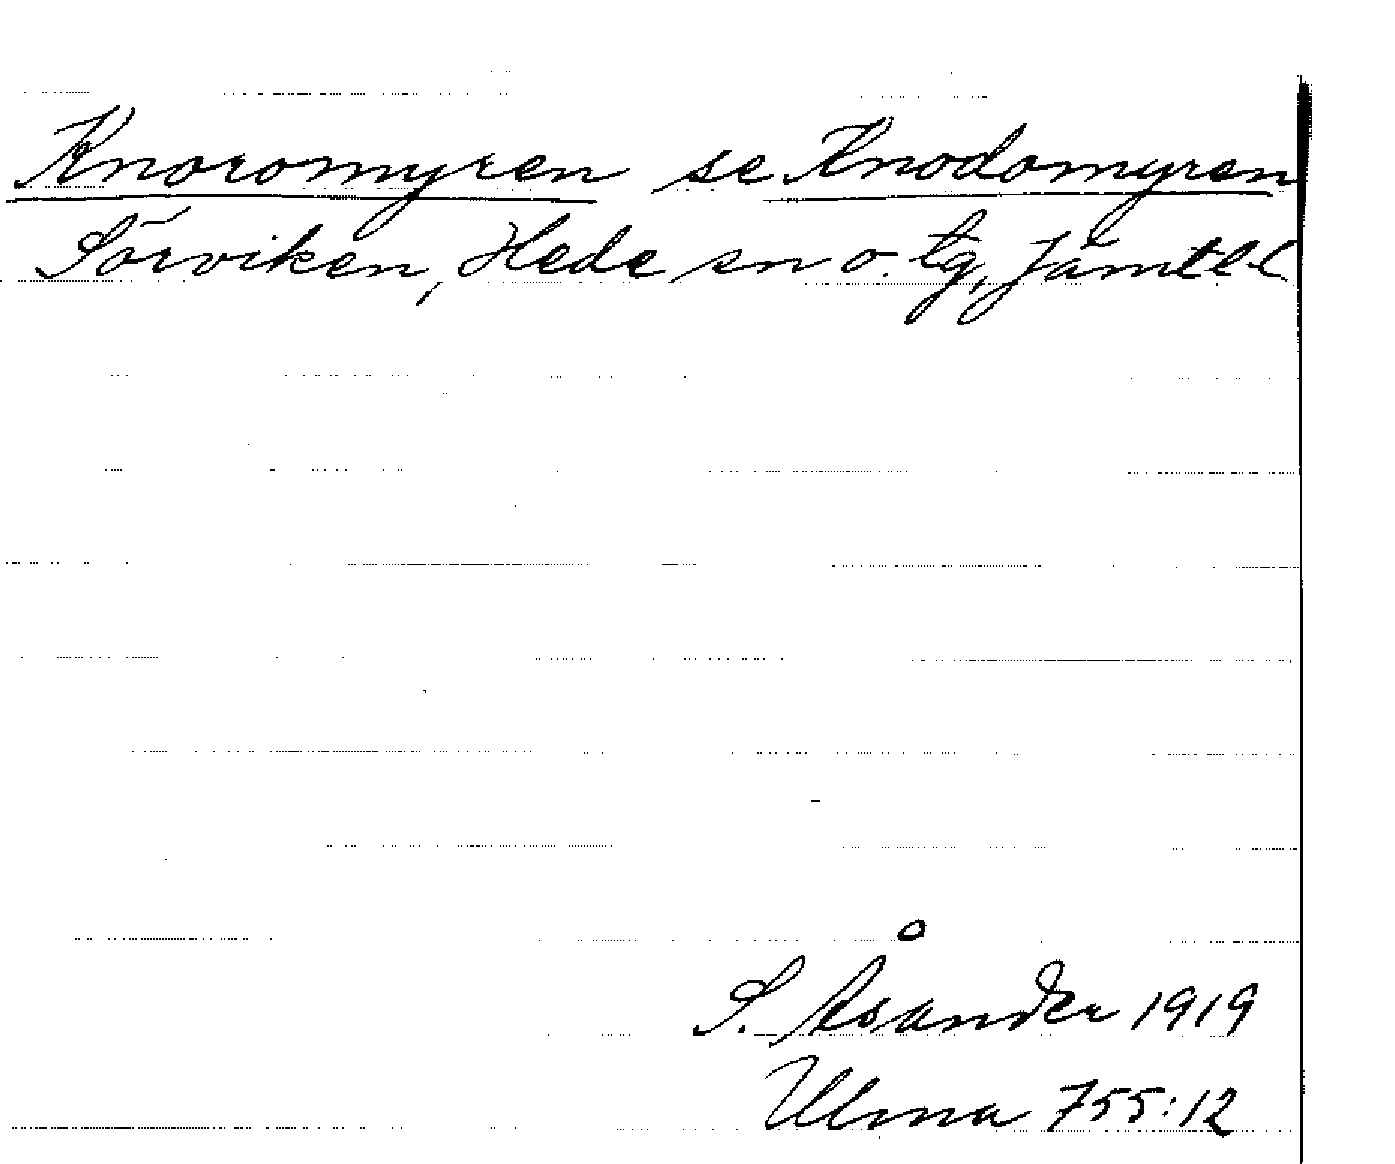 Knoromyren se Knodomyren
Sörviken, Hede sn o. tg, Jämtl l.
S. Åsander 1919
Ulma 755:12